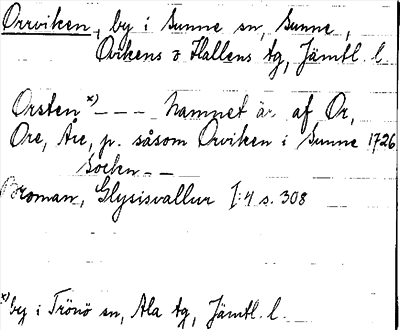 Orrviken, by i Sunne sn, Sunne,
Ovikens o Hallens tg, Jämtl. l.
Orsten x) - - - Namnet är af Or,
Ore, Åre, p. såsom Orviken i Sunne 1726
Socken - -
Broman, Glysisvallur I:4 s. 308
x) by i Trönö sn, Ala tg, Jämtl. l.